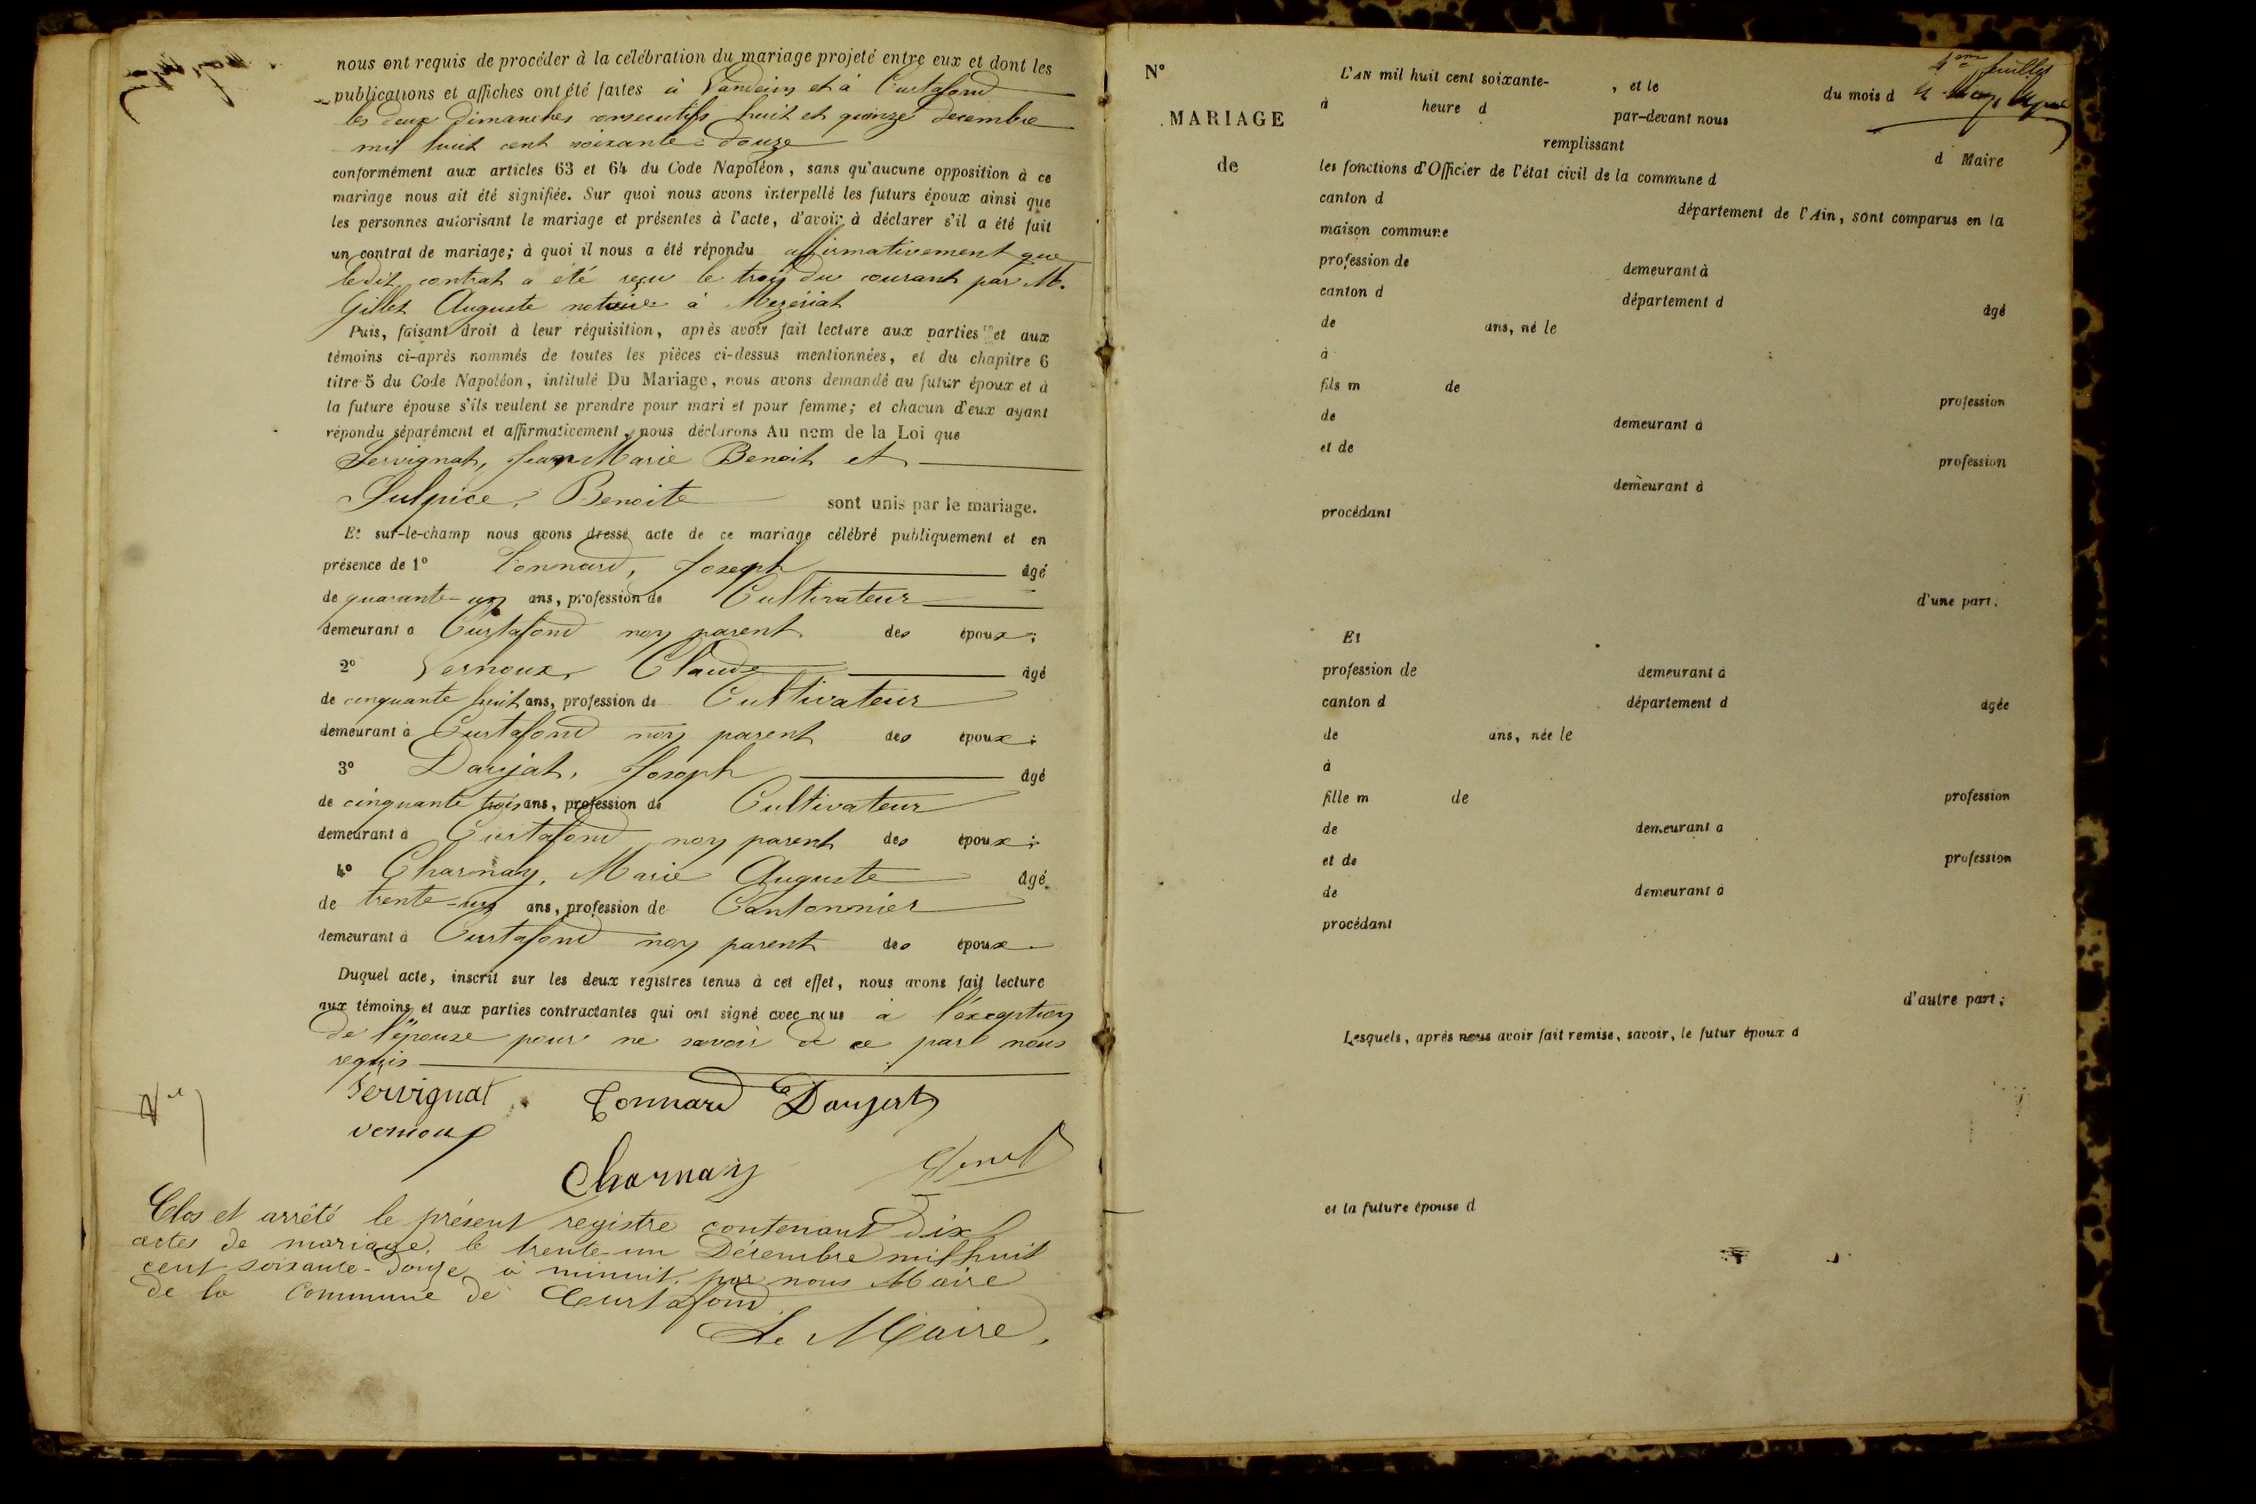 nous ont requis de procéder à la célébration du mariage projeté entre eux et dont les
publications et affiches ont été faites à Vandeins et à Curtafond
les deux Dimanches consecutifs huit et quinze decembre
mil huit cent soixante-douze
conformément aux articles 63 et 64 du Code Napoléon, sans qu'aucune opposition à ce
mariage nous ait été signifiée. Sur quoi nous avons interpellé les futurs époux ainsi que
les personnes autorisant le mariage et présentes à l'acte, d'avoir à déclarer s'il a été fait
un contrat de mariage; à quoi il nous a été répondu affirmativement que
ledit contrat a été reçu le trois du courant par M.
Gillet Auguste notaire à Mezériat
Puis, faisant droit à leur réquisition, après avoir fait lecture aux parties et aux
témoins ci-après nommés de toutes les pièces ci-dessus mentionnées, et du chapitre 6
titre 5 du Code Napoléon, intitulé Du Mariage, nous avons demandé au futur époux et à
la future épouse s'ils veulent se prendre pour mari et pour femme; et chacun d'eux ayant
répondu séparément et affirmativement, nous déclarons Au nom de la Loi que
Servignat, Jean Marie Benoit et
Sulpice, Benoite sont unis par le mariage.
Et sur-le-champ nous avons dressé acte de ce mariage célébré publiquement et en
présence de 1° Connard, Joseph âgé
de quarante-un ans, profession de Cultivateur
demeurant à Curtafond non parent des époux;
2° Vernoux, Claude âgé
de cinquante huit ans, profession de Cultivateur
demeurant à Curtafond non parent des époux;
3° Daujat, Joseph âgé
de cinquante trois ans, profession de Cultivateur
demeurant à Curtafond non parent des époux;
4° Charnay, Marie Auguste âgé
de trente-un ans, profession de Cantonnier
demeurant à Curtafond non parent des époux
Duquel acte, inscrit sur les deux registres tenus à cet effet, nous avons fait lecture
aux témoins et aux parties contractantes qui ont signé avec nous à l'exception
de l'épouse pour ne savoir de ce par nous
requis
Servignat Connard Daujat
vernoux
Charnay
Clos et arrêté le présent registre contenant dix
actes de mariage, le trente-un Décembre mil huit
cent soixante-douze à minuit, par nous Maire
de la Commune de Curtafond
Le Maire,
4me feuillet
N°
MARIAGE
de
L'AN mil huit cent soixante- , et le du mois d
à heure d par-devant nous
remplissant d Maire
les fonctions d'Officier de l'état civil de la commune d
canton d département de l'Ain, sont comparus en la
maison commune
profession de demeurant à
canton d département d âgé
de ans, né le
à
fils m de profession
de demeurant à
et de profession
demeurant à
procédant
d'une part.
Et
profession de demeurant à
canton d département d âgée
de ans, née le
à
fille m de profession
de demeurant à
et de profession
de demeurant à
procédant
d'autre part;
Lesquels, après nous avoir fait remise, savoir, le futur époux d
et la future épouse d